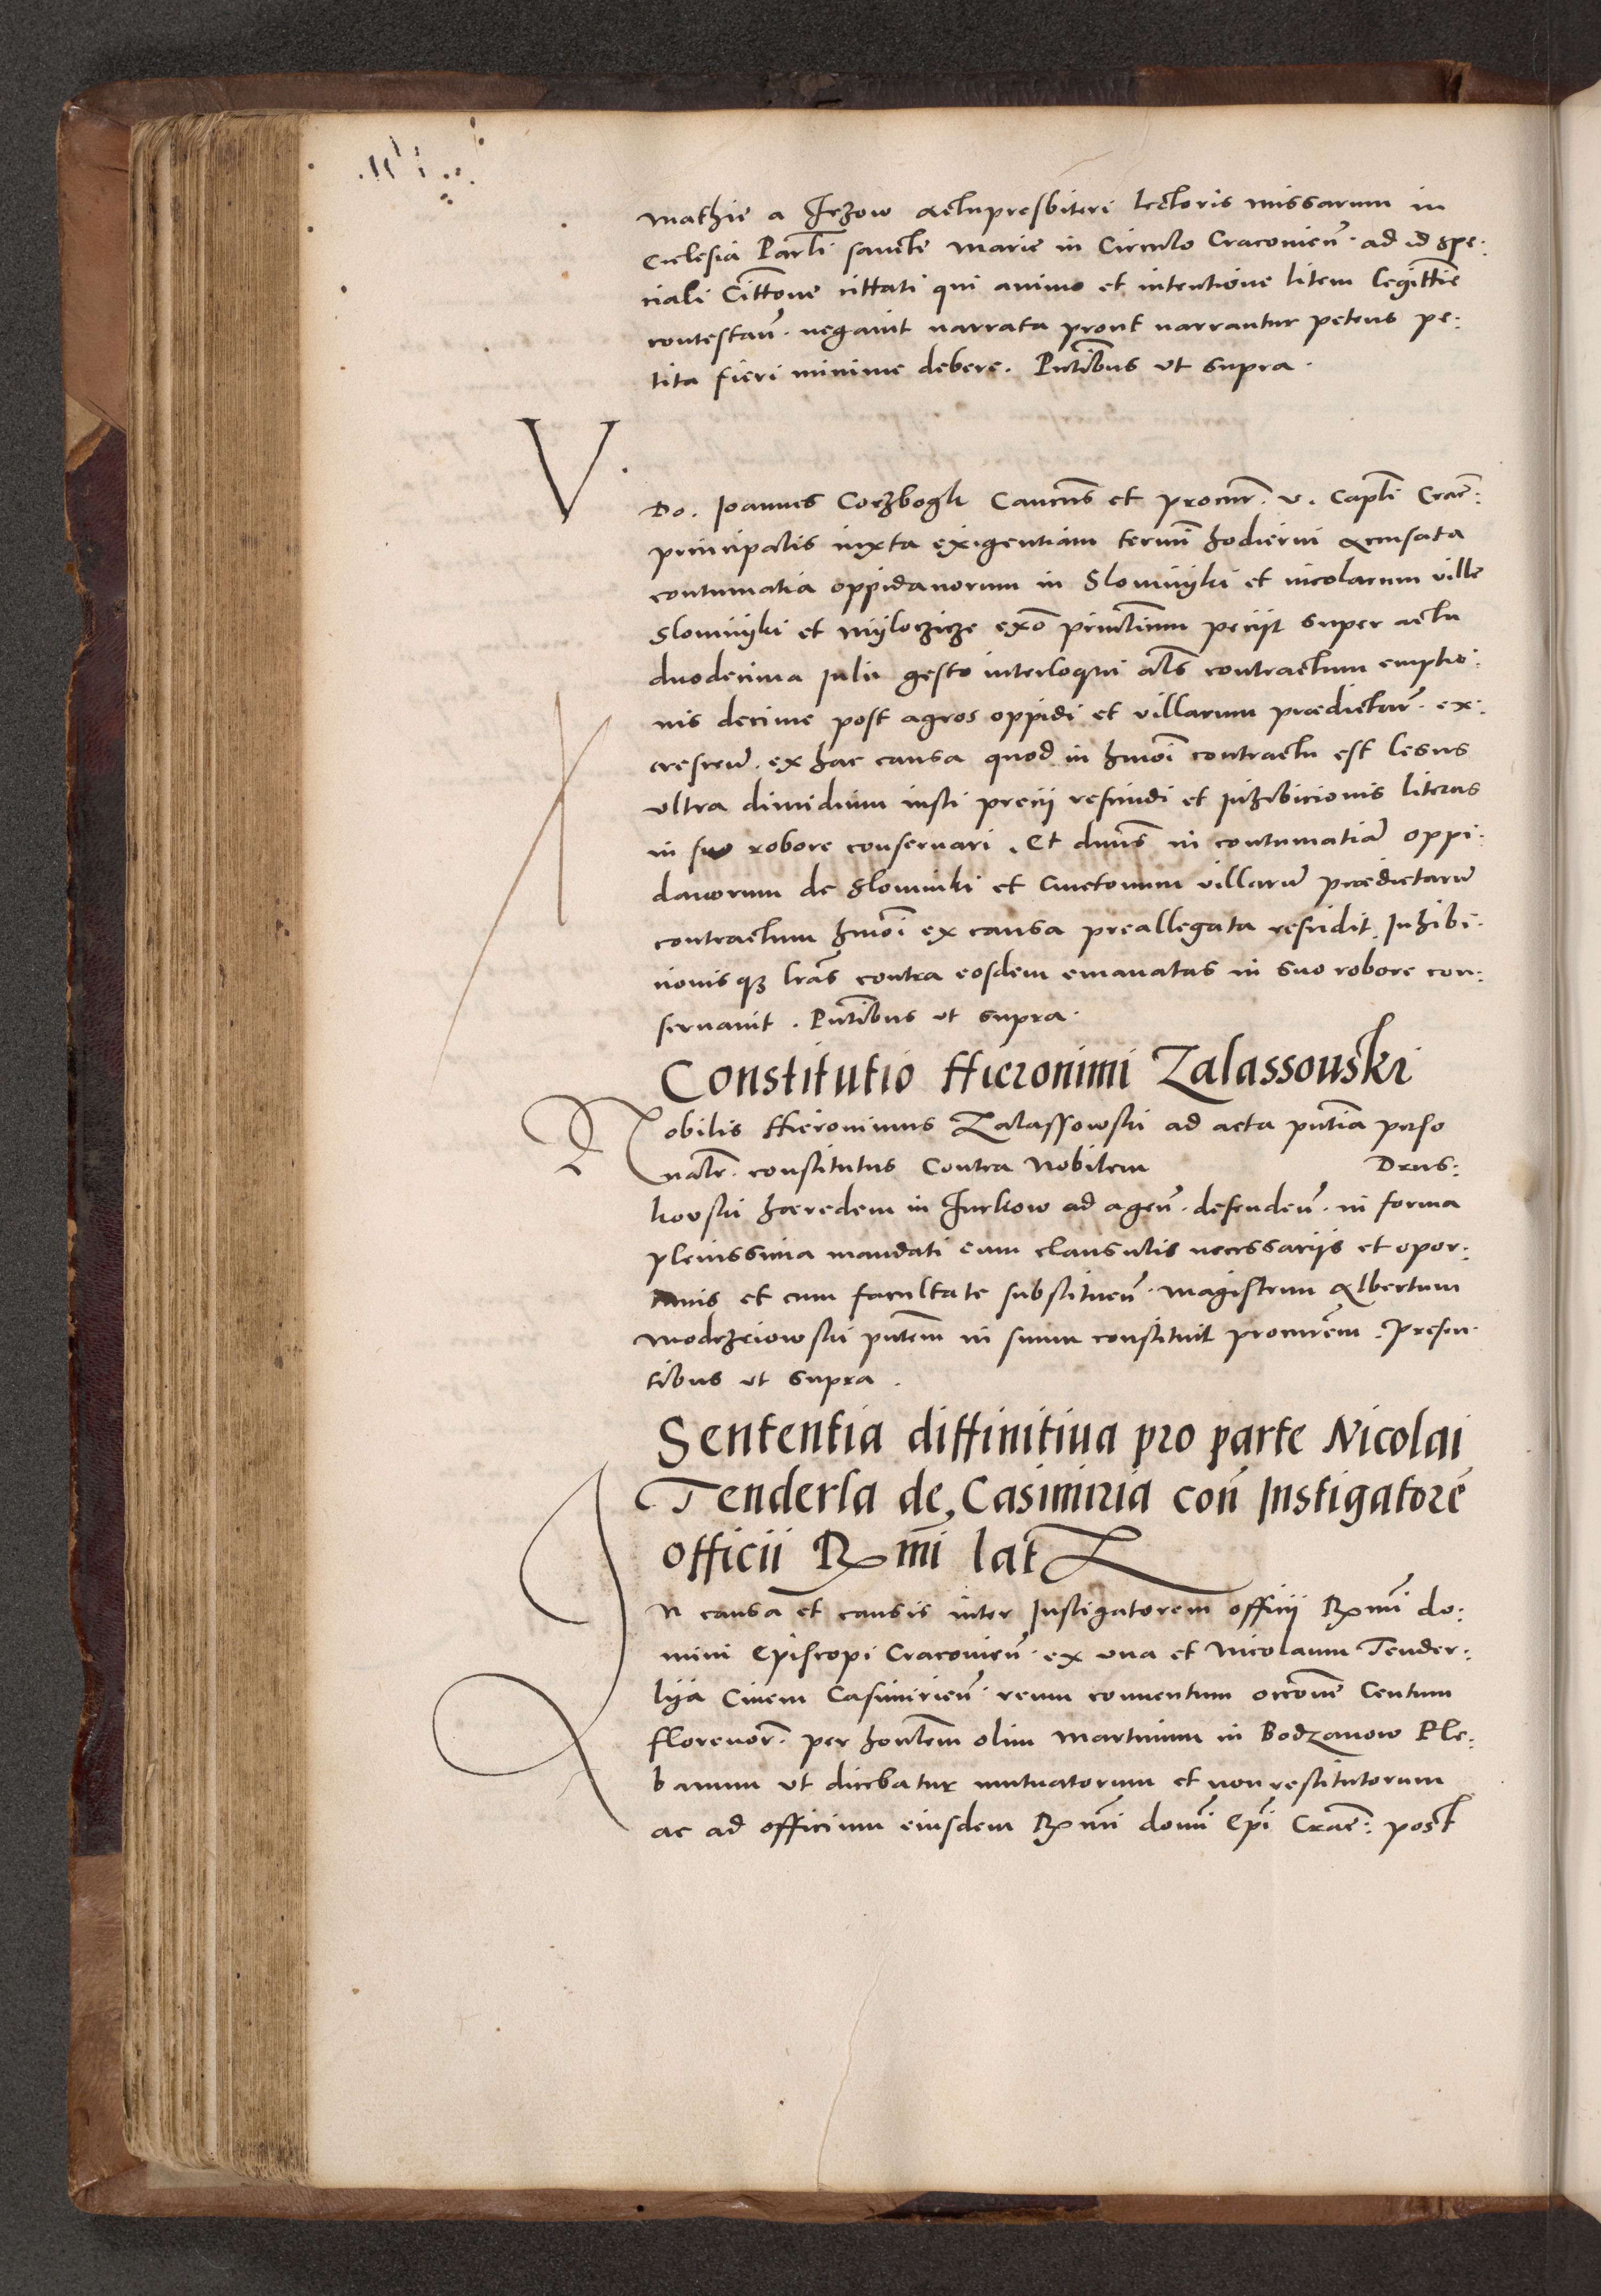 mathie a Irzow Altipresbiteri lectoris missarum in
Ecclesia Parli sancte marie in Circulo Cracovień. ad id spe:
ciali Citt̃one cittati qui animo et intentione litem legitt̃ie
contestań. negauit narrata prout narrantur petens pe:
tita fieri minime debere. Pñtibus ut supra.
V.
Do. Ioannes Corzbogk Canc̃us et procur̃. v. Capłi Crac̃:
principalis iuxta exigentiam termi hodierni accusata
contumatia oppidanorum in Slomnyki et incolarum ville
Slomnyki et myloczicze exõ prinćtium petijt super actu
duodecima Iulii gesto interloqui als contractum emptio:
nis decime post agros oppidi et villarum prædictar̃. ex:
cresceñ. ex hac causa quod in hmõi contractu est lesus
ultra dimidium iusti precij rescindi et Inhibicionis literas
in suo robore conseruari. Et dñus in contumatiã oppi:
danorum de Slomniki et Cmetonum villarũ prædictarũ
contractum hmõi ex causa preallegata rescidit. Inhibi:
cionisqʒ lr̃as contra eosdem emanatas in suo robore con:
seruauit. Pñtibus ut supra.
Constitutio Hieronimi Zalassouski
Nobilis Hieronimus Zalassowski ad acta pñtia perso
nalr̃. constitutus Contra Nobilem Drus:
kovski hæredem in Iurkow ad ageñ. defendeñ. in forma
plenissima mandati cum clausulis necessarijs et opor:
tunis et cum facultate substitueñ. magistrum Albertum
modrzeiowski pñtem in suum constituit procur̃em. Presen
tibus ut supra.
Sententia diffinitiua pro parte Nicolai
Tenderla de Casimiria coñ Instigatorẽ
officii Rmi lat̃
In causa et causis inter Instigatorem officij Rmi do:
mini Episcopi Cracovień. ex una et Nicolaum Tender:
lya Ciuem Casimirień. reum conuentum occõne Centum
florenor̃. per honłem olim Martinum in Bodzanow Ple:
banum ut dicebatur mutuatorum et non restitutorum
ac ad officium eiusdem Rmi domi Epi Crac̃: post